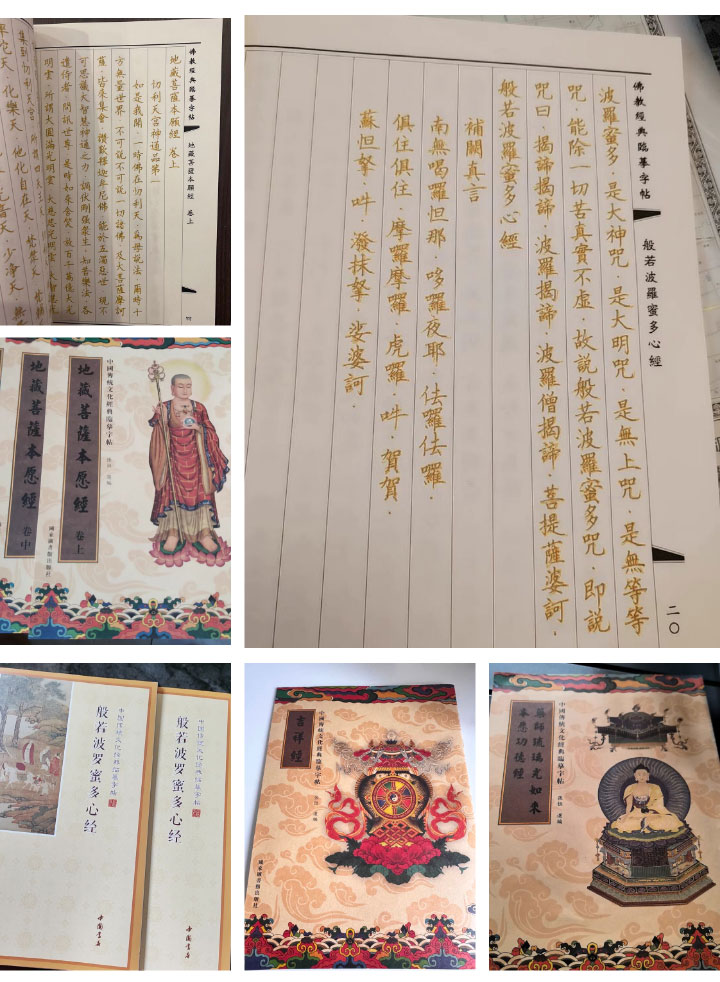 佛教經典臨摹字帖
地藏菩薩本願經 卷上
地藏菩薩本願經 卷上
忉利天宮神通品第一
如是我聞．一時佛在忉利天．為母說法．爾時十
方無量世界．不可說不可說一切諸佛．及大菩薩摩訶
薩．皆來集會．讚歎釋迦牟尼佛．能於五濁惡世．現不
可思議大智慧神通之力．調伏剛強眾生．知苦樂法．各
遣侍者．問訊世尊．是時如來含笑．放百千萬億大光
明雲．所謂大圓滿光明雲．大慈悲光明雲．
他化自在天．
化樂天．
佛教經典臨摹字帖
般若波羅蜜多心經
二〇
波羅蜜多．是大神咒．是大明咒．是無上咒．是無等等
咒．能除一切苦真實不虛．故說般若波羅蜜多咒．即說
咒曰．揭諦揭諦．波羅揭諦．波羅僧揭諦．菩提薩婆訶．
般若波羅蜜多心經
補闕真言
南無喝囉怛那．哆囉夜耶．佉羅佉囉．
俱住俱住．摩囉摩囉．虎羅．吽．賀賀．
蘇怛拏．吽．潑抹拏．娑婆訶．
中國傳統文化經典臨摹字帖
地藏菩薩本愿經 卷上
地藏菩薩本愿經 卷中
中国传统文化经典临摹字帖
般若波罗蜜多心经
中国书店
中国传统文化经典临摹字帖
般若波罗蜜多心经
中国书店
中國傳統文化經典臨摹字帖
吉祥經
中國傳統文化經典臨摹字帖
藥師琉璃光如來
本愿功德經